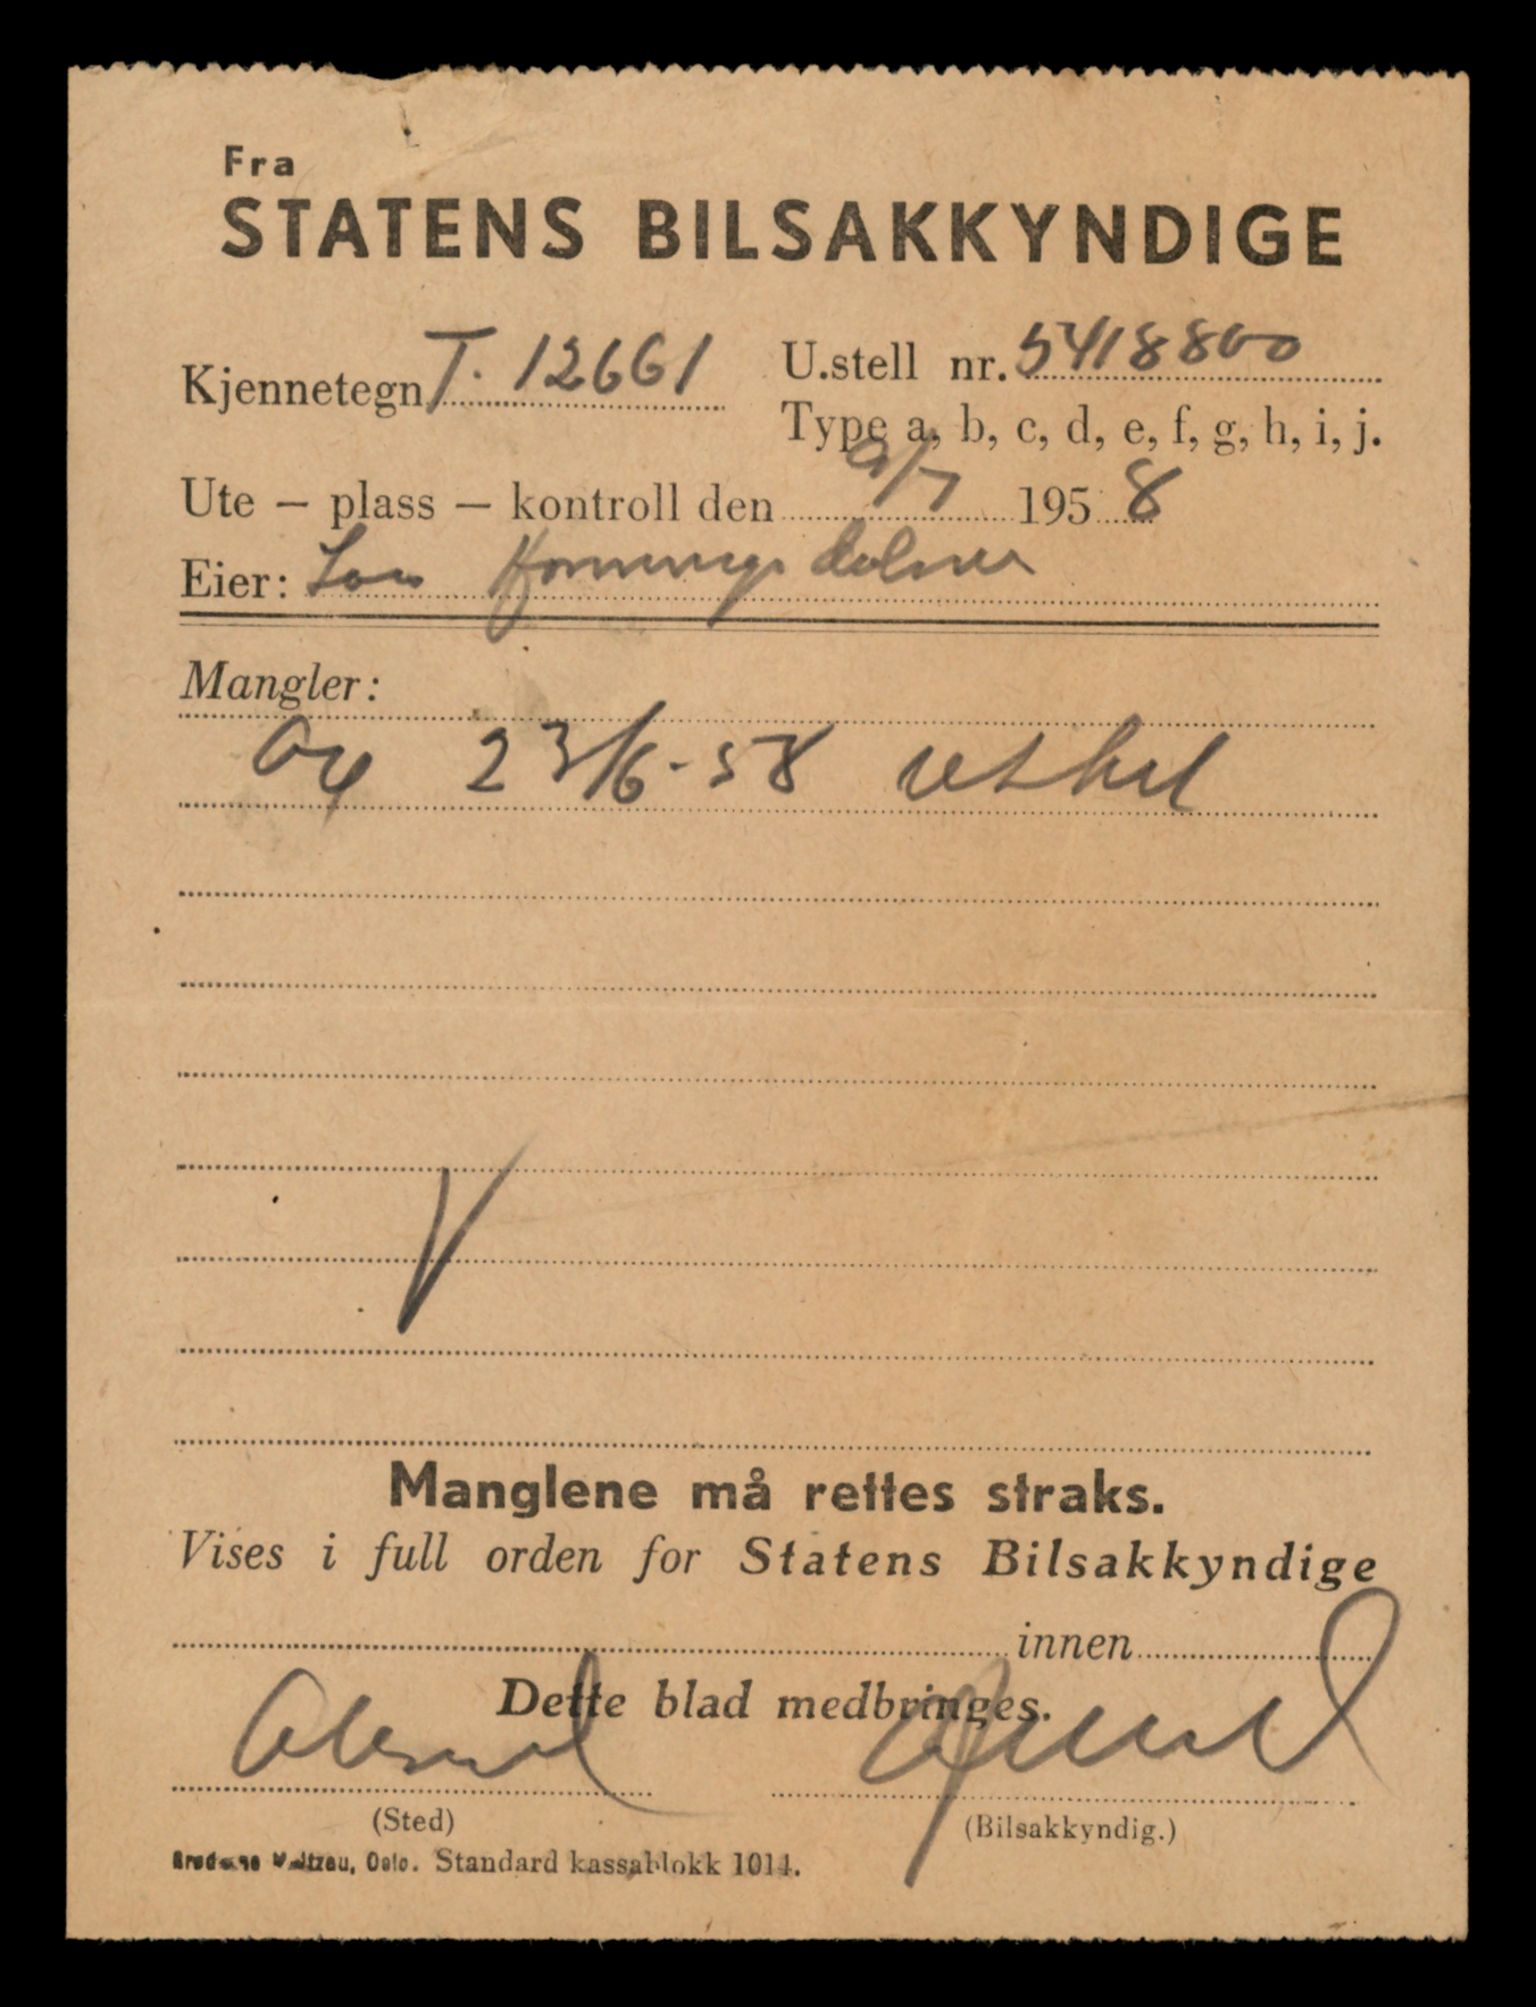 Fra
STATENS BILSAKKYNDIGE
Kjennetegn T. 12661
U.stell nr. 5418800
Type a, b, c, d, e, f, g, h, i, j.
Ute — plass — kontroll den 9/7 1958
Eier:
Mangler:
23/6-58
Manglene må rettes straks.
Vises i full orden for Statens Bilsakkyndige
innen
Dette blad medbringes.
(Sted)
(Bilsakkyndig.)
Oslo. Standard kassablokk 1014.